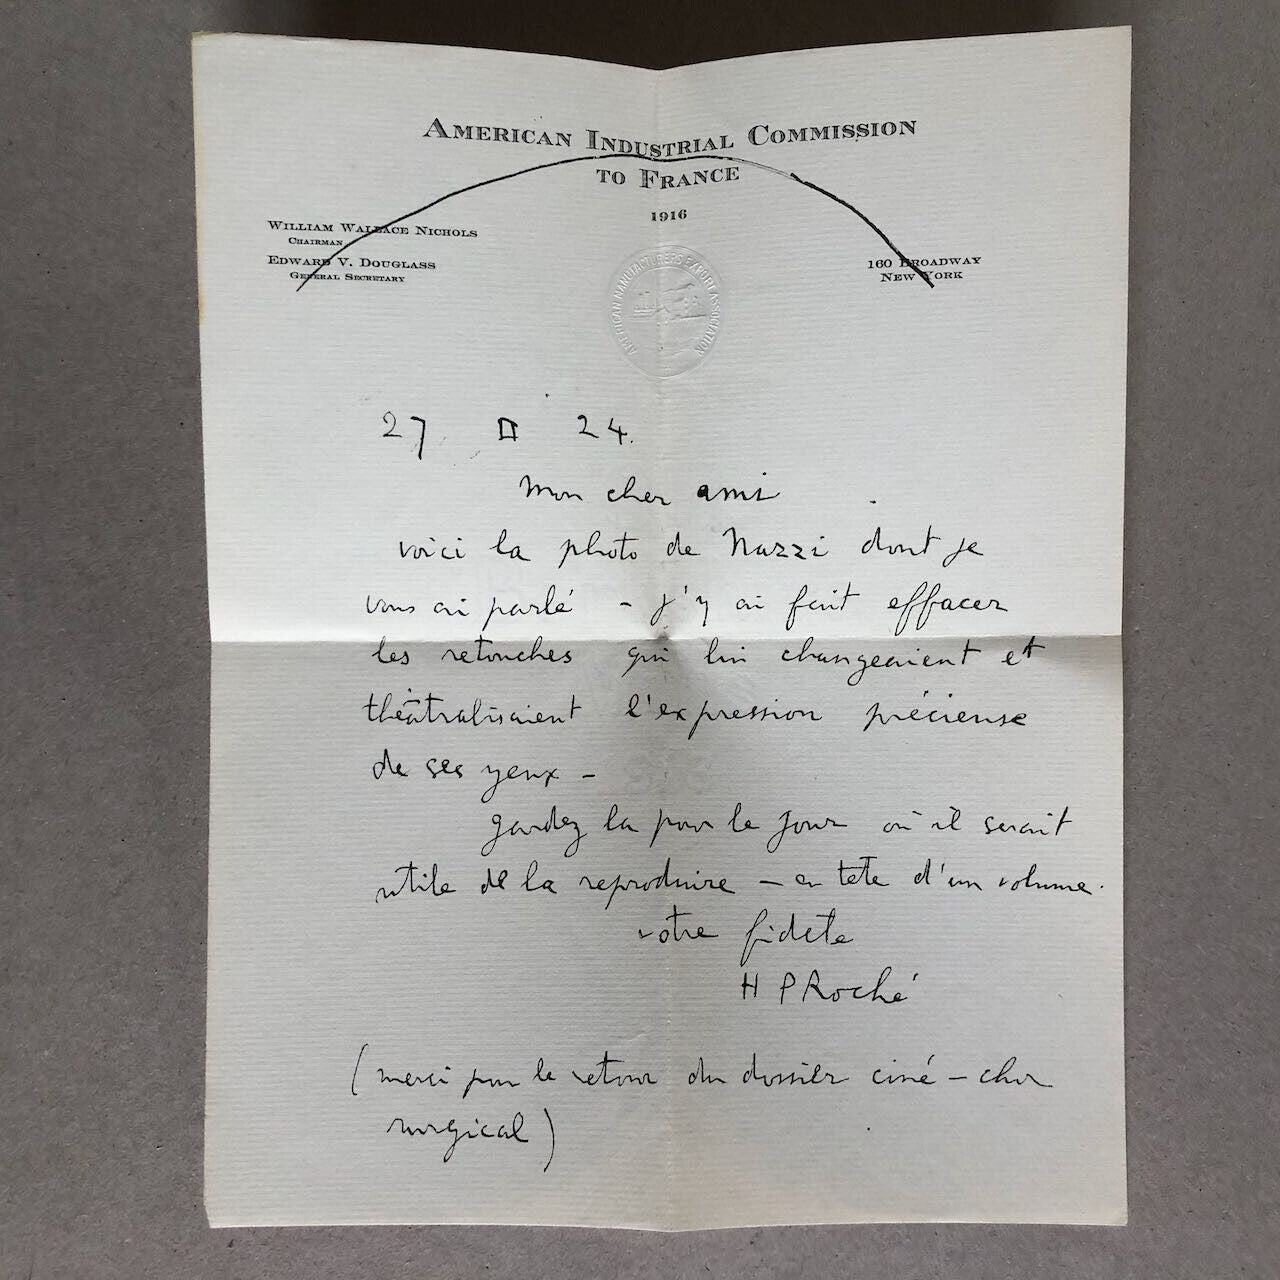 AMERICAN INDUSTRIAL COMMISSION
TO FRANCE
1916
WILLIAM WALLACE NICHOLS
CHAIRMAN
EDWARD V. DOUGLASS
GENERAL SECRETARY
160 BROADWAY
NEW YORK
AMERICAN MANUFACTURERS EXPORT ASSOCIATION
27 II 24.
Mon cher ami
voici la photo de Nazzi dont je
vous ai parlé - j'y ai fait effacer
les retouches qui lui changeaient et
théâtralisaient l'expression précieuse
de ses yeux -
gardez la pour le jour où il serait
utile de la reproduire - en tete d'un volume.
votre fidele
H P Roché
(merci pour le retour du dossier ciné - chir
rurgical)